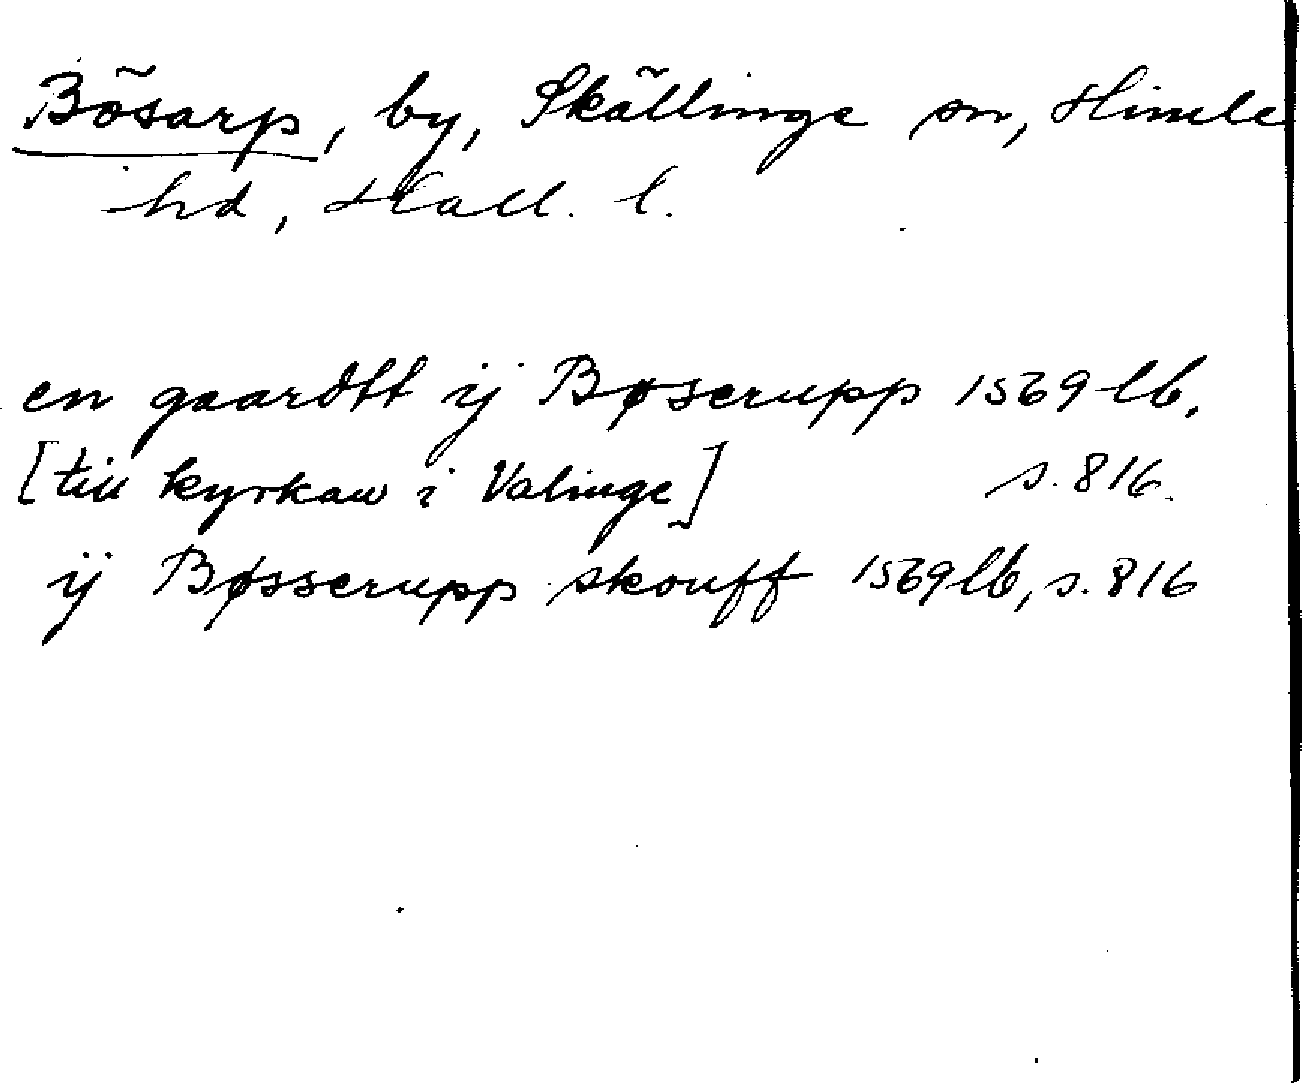 Bösarp, by, Skällinge sn, Himle
hd, Hall. l.
en gaardtt ij Bøserupp 1569 lb,
[till kyrkan i Valinge] s. 816.
ij Bøsserupp skouff 1569 lb, s. 816